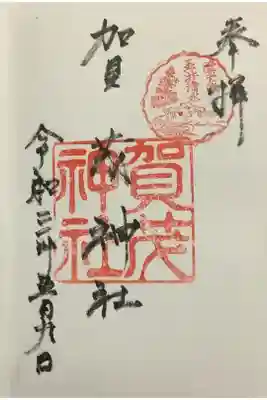 奉拝
加賀
茂神社
賀茂
神社
令和三年五月九日